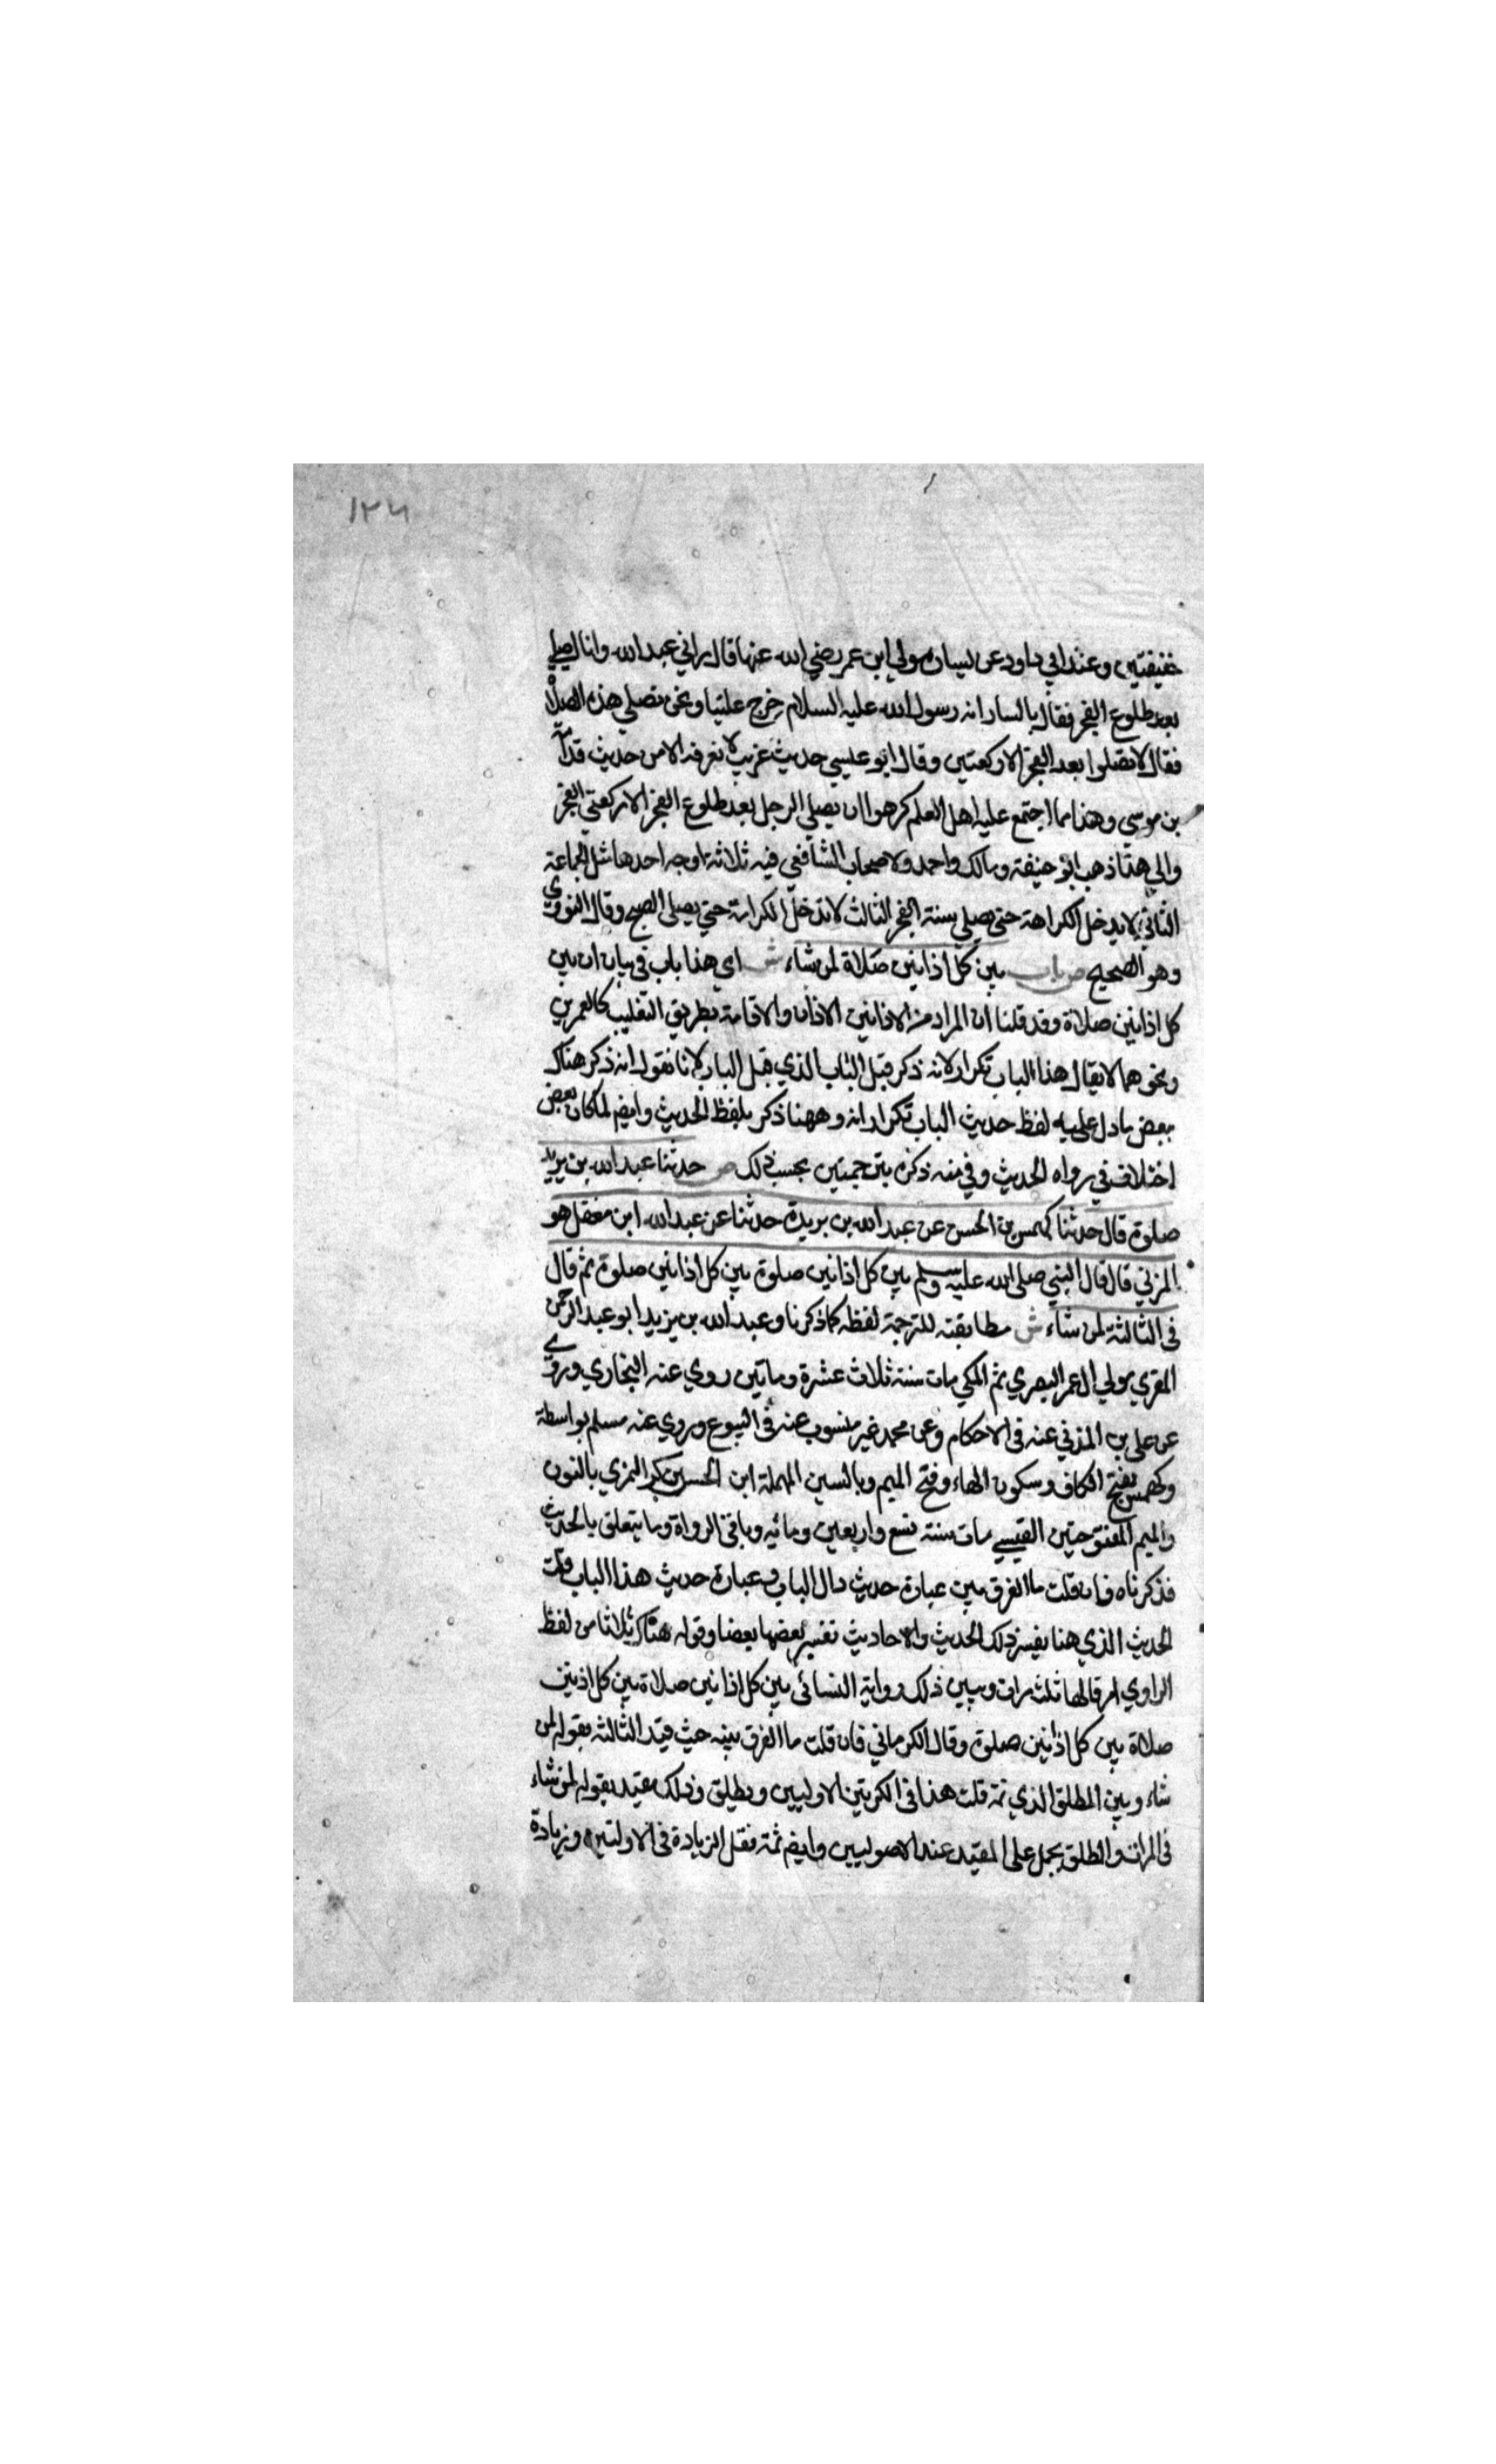 ١٢٦
خفيفتين وعند ابي داود عن يسار مولي ابن عمر رضي الله عنهما قال راني عبد الله وانا اصلي
بعد طلوع الفجر فقال يا يسار انه رسول الله عليه السلام خرج علينا ونحن نصلي هذه الصلاة
فقال لا تصلوا بعد الفجر الا ركعتين وقال ابو عيسي حديث غريب لا نعرفه الا من حديث قدامة
بن موسي وهذا مما اجتمع عليه اهل العلم كرهوا ان يصلي الرجل بعد طلوع الفجر الا ركعتي الفجر
والي هذا ذهب ابو حنيفة ومالك واحمد ولاصحاب الشافعي فيه ثلاثة اوجه احدها مثل الجماعة
الثاني لا يدخل الكراهة حتى يصلي سنة الفجر الثالث لا تدخل الكراهة حتي يصلي الصبح وقال النووي
وهو الصحيح ص باب بين كل اذانين صلاة لمن شاء ش اي هذا باب في بيان ان بين
كل اذانين صلاة وقد قلنا ان المراد من الاذانين الاذان والاقامة بطريق التغليب كالعمرين
ونحوهما لا يقال هذا الباب تكرار لانه ذكر قبل الباب الذي قبل الباب لانا نقول انه ذكر هناك
بعض ما دل عليه لفظ حديث الباب تكرار انه وههنا ذكر بلفظ الحديث وايضم لما كان بعض
اختلاف في رواه الحديث وفي منه ذكره بترجمتين بحسب ذلك ص حدثنا عبد الله بن يزيد
صلوة قال حدثنا كهمس بن الحسن عن عبد الله بن بريدة حدثنا عن عبد الله ابن مغفل هو
المزني قال قال النبي صلى الله عليه وسلم بين كل اذانين صلوة بين كل اذانين صلوة ثم قال
في الثالثة لمن شاء ش مطابقته للترجمة لفظه كما ذكرنا وعبد الله بن يزيد ابو عبد الرحمن
المقري مولي ال عمر البصري ثم المكي مات سنة ثلاث عشرة وماتين روي عنه البخاري وروي
عن علي بن المدني عنه في الاحكام وعن محمد غير منسوب عنه في البيوع وروي عنه مسلم بواسطة
وكهمس بفتح الكاف وسكون الهاء وفتح الميم وبالسين المهملة ابن الحسن بكر النمري بالنون
والميم المفتوحتين القيسي مات سنة تسع واربعين ومائه وباقي الرواة وما يتعلق بالحديث
فذكرناه فان قلت ما الفرق بين عبارة حديث دال الباب وعبارة حديث هذا الباب قلت
الحديث الذي هنا يفسر ذلك الحديث والاحاديث تفسير بعضها بعضا وقوله هناك ثلاثا من لفظ
الراوي ام قالها ثلث مرات ويبين ذلك رواية النسائي بين كل اذانين صلاة بين كل اذنين
صلاة بين كل اذانين صلوة وقال الكرماني فان قلت ما الفرق بينه حيث قيد الثالثة بقوله لمن
شاء وبين المطلق الذي ثمة قلت هذا في الكرتين الاوليين ويطلق وذلك مقيد بقوله لمن شاء
في المرات والمطلق يحمل على المقيد عند الاصوليين وايضم ثمة فقل الزيادة في الاولتين وزيادة